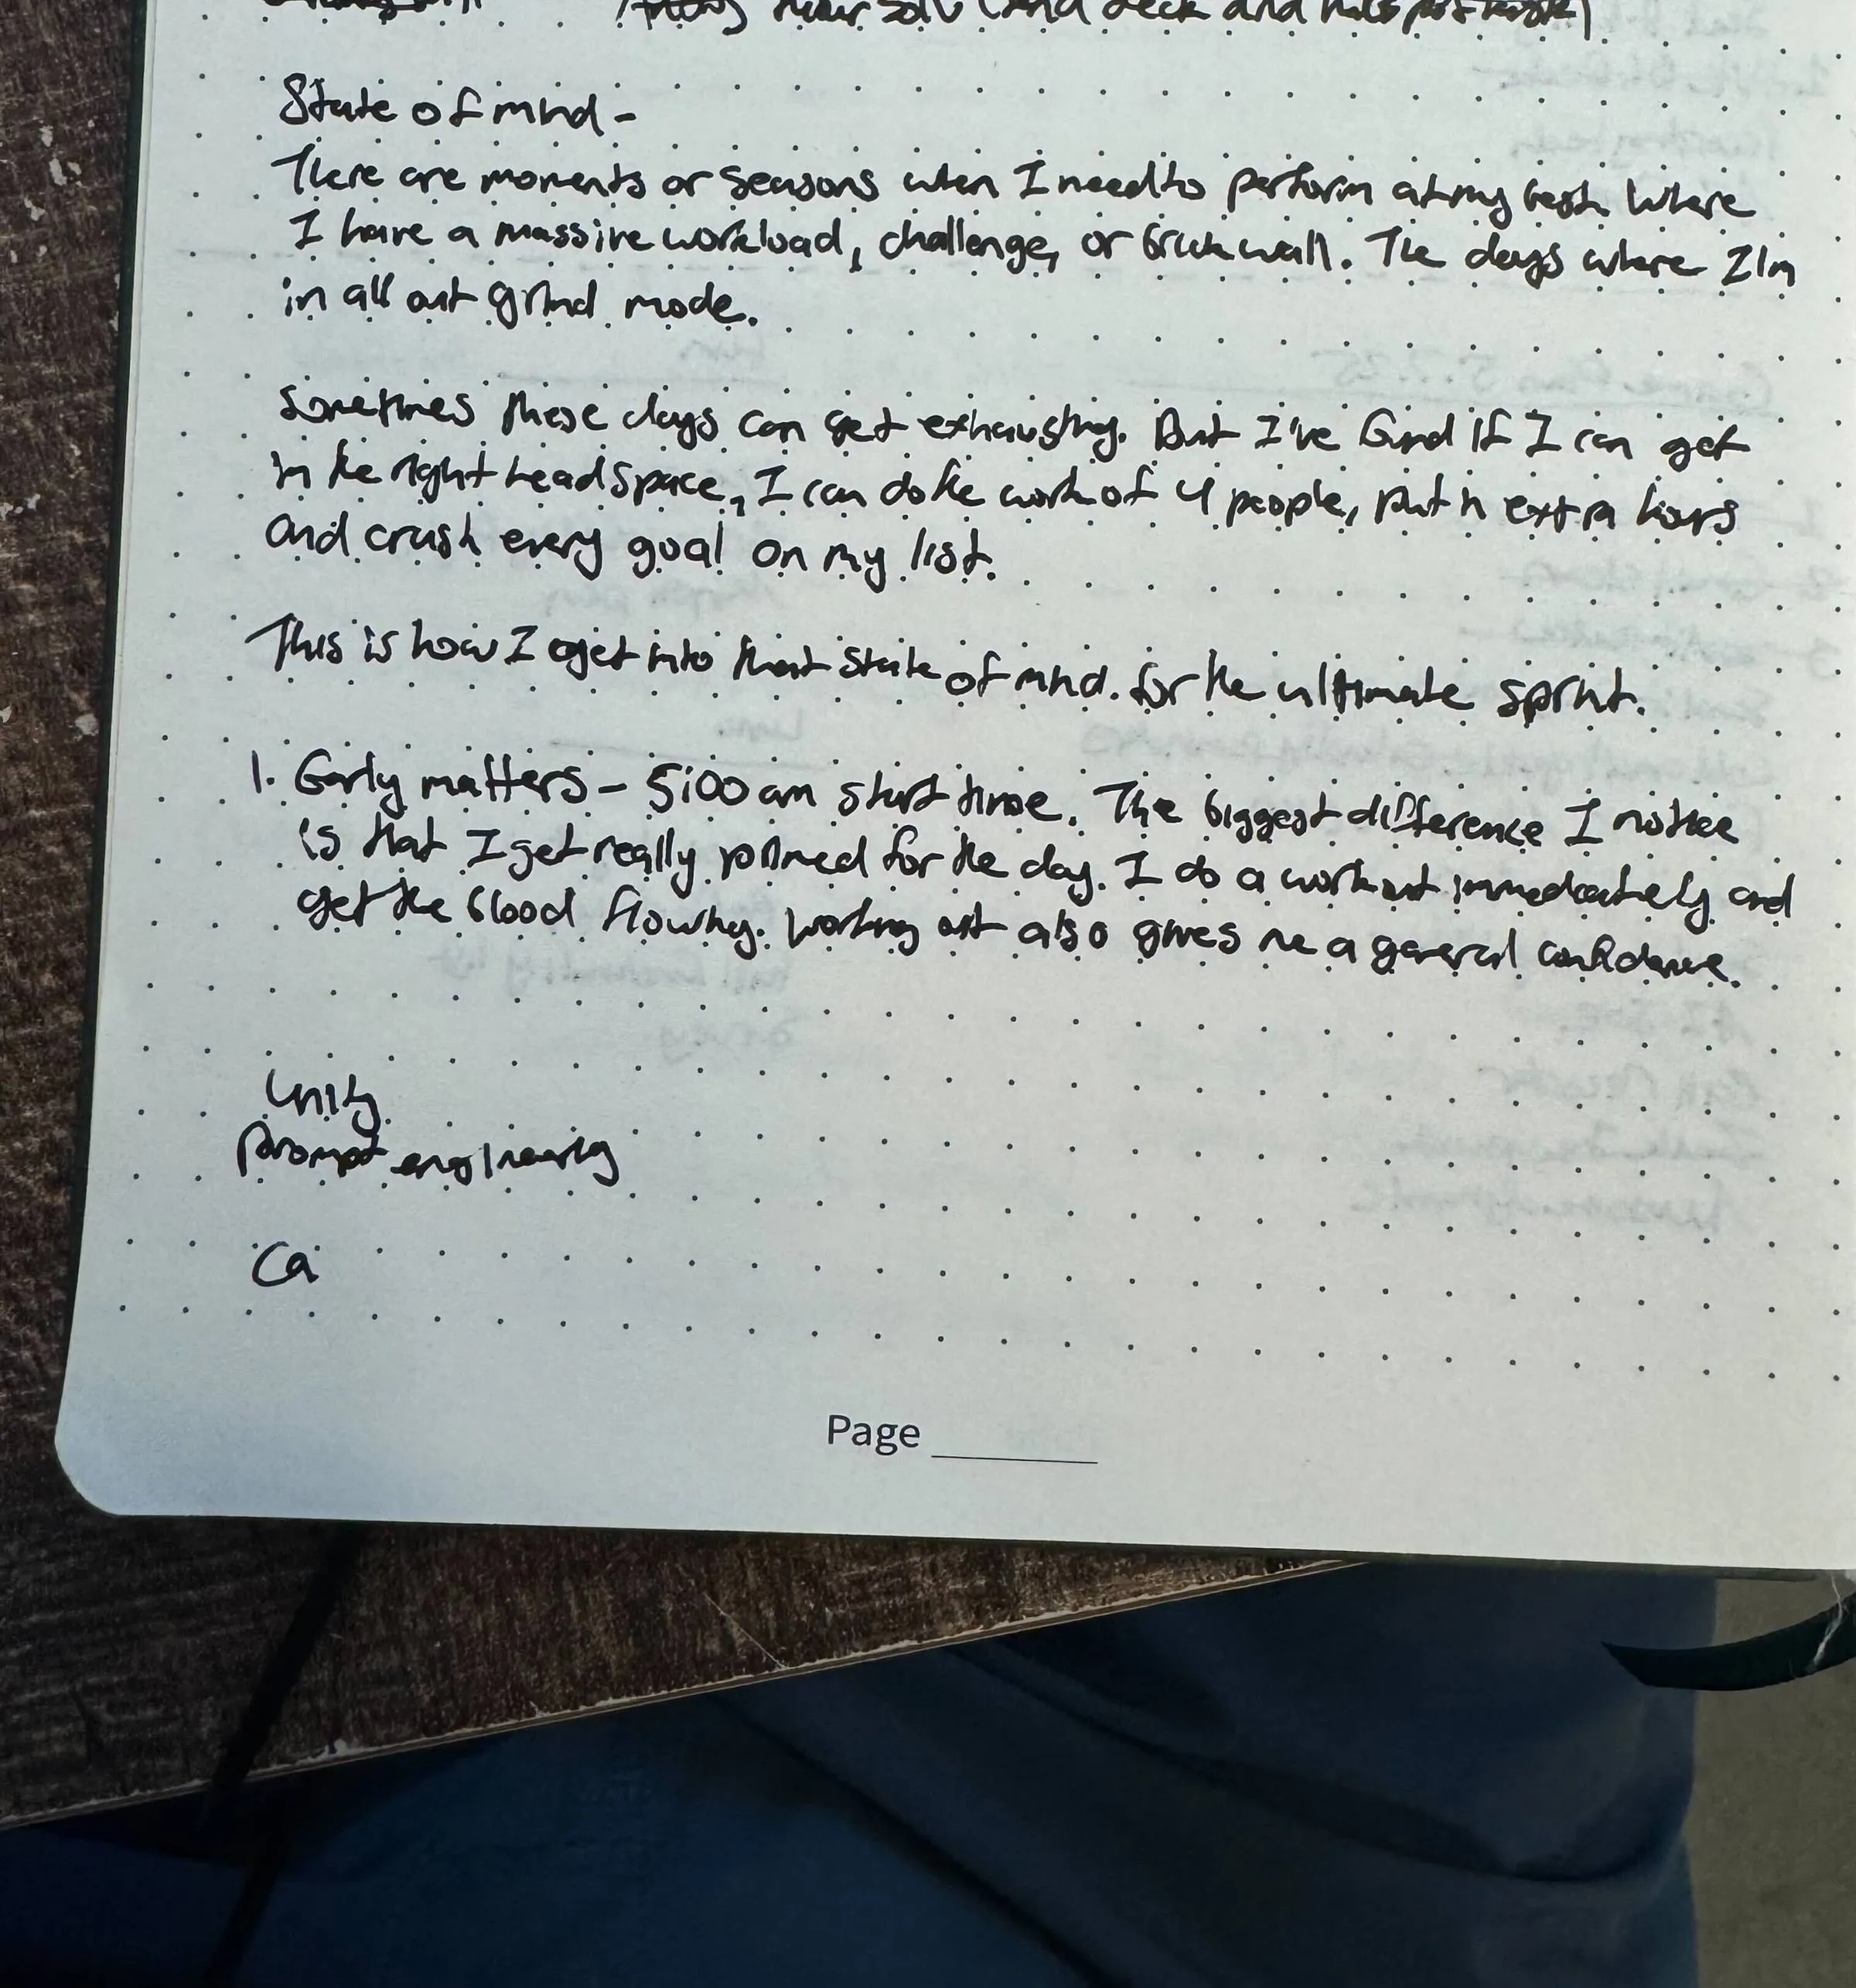 deck and
State of mind -
There are moments or seasons when I need to perform at my best. Where
I have a massive workload, challenge, or brick wall. The days where I'm
in all out grind mode.
Sometimes these days can get exhausting. But I've found if I can get
in the right headspace, I can do the work of 4 people, put in extra hours
and crush every goal on my list.
This is how I get into that state of mind. for the ultimate sprint.
1. Early matters - 5:00 am start time. The biggest difference I notice
is that I get really primed for the day. I do a workout immediately and
get the blood flowing. Working out also gives me a general confidence.
Unity
Prompt engineering
Ca
Page